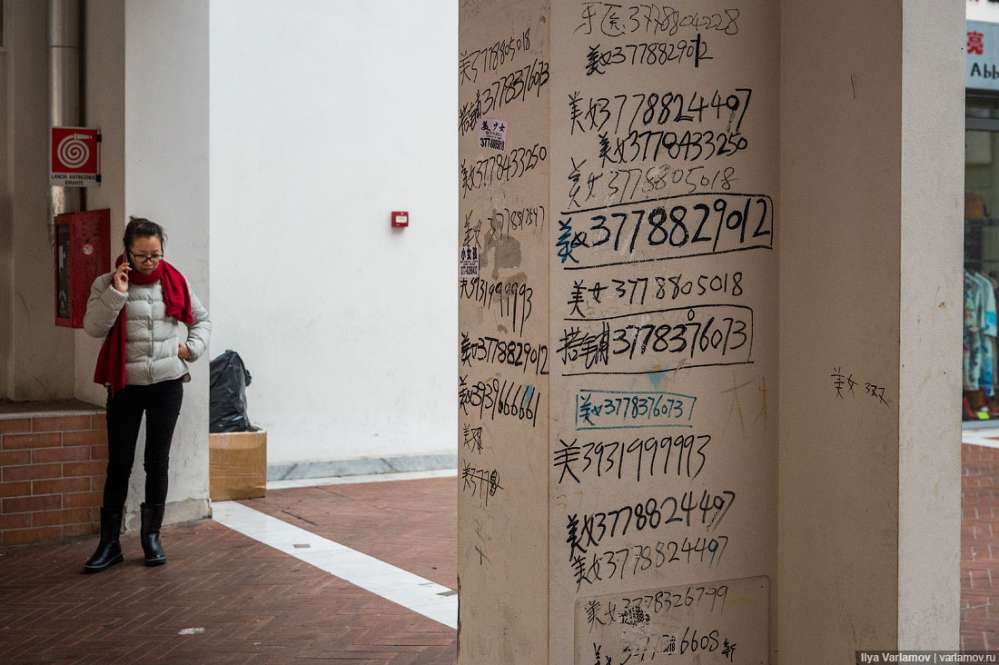 LANCIA ANTINCENDIO
美女3778805018
搭铺3778376073
美少女
美女3778433250
小女孩
美3931999993
美女3778829012
美3939666661
牙医3778804228
美女3778829012
美女3778824497
美女3778433250
美女3778805018
美女3778829012
美女3778805018
搭铺3778376073
美女3778376073
美3931999993
美女3778824497
美女3778824497
美女3778326799
美女 377
亮
Abb
Ilya Varlamov | varlamov.ru